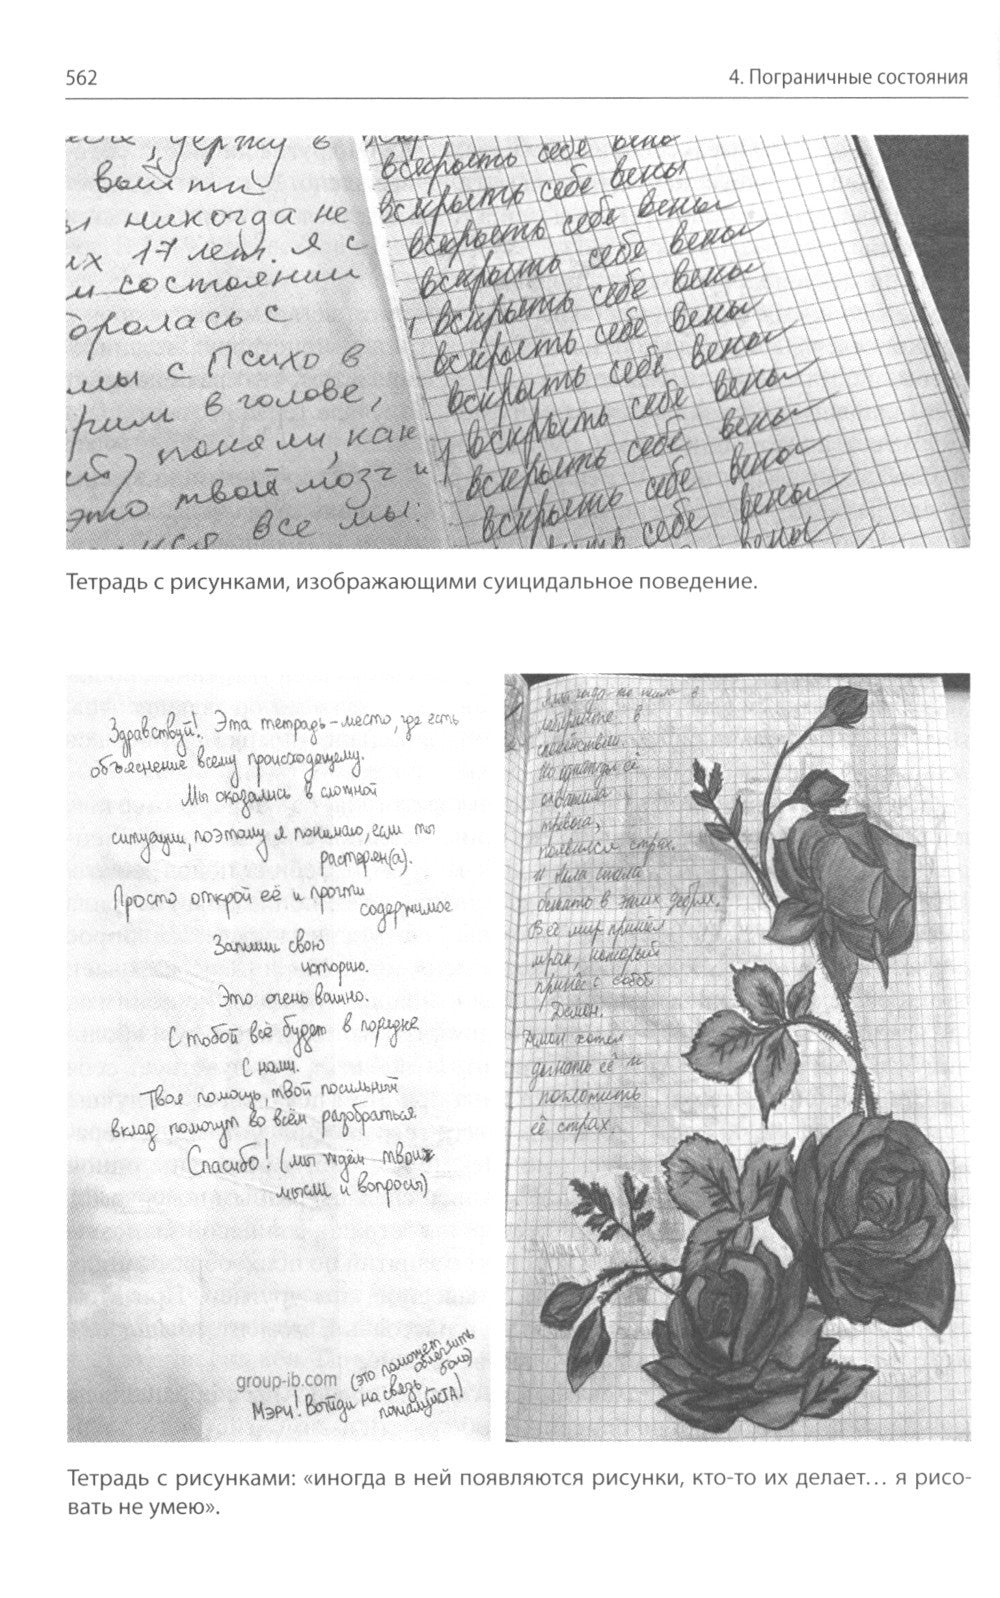 562
4. Пограничные состояния
держу в
выйти
и никогда не
их 17 лет. Я с
м состоянии
боролась с
мы с Психо в
рим в голове,
поняли, как
это твой мозг и
все мы:
вскрыть себе вены
вскрыть себе вены
вскрыть себе вены
вскрыть себе вены
вскрыть себе вены
вскрыть себе вены
вскрыть себе вены
вскрыть себе вены
вскрыть себе вены
вскрыть себе вены
себе вены
Тетрадь с рисунками, изображающими суицидальное поведение.
Здравствуй! Эта тетрадь – место, где есть
объяснение всему происходящему.
Мы оказались в сложной
ситуации, поэтому я понимаю, если ты
растерян(а).
Просто открой её и прочти
содержимое
Запиши свою
историю.
Это очень важно.
С тобой всё будет в порядке
С нами.
Твоя помощь, твой посильный
вклад помогут во всём разобраться
Спасибо! (мы ждём твоих
мысли и вопросы)
(это поможет
облегчить
боль)
group-ib.com
Мэри! Выйди на связь
пожалуйста!
в
спокойствии.
Но однажды её
охватила
тревога,
появился страх.
И она стала
бежать в этих дебрях.
В её мир пришёл
мрак, который
принёс с собой
Демон.
Демон хотел
догнать её и
поглотить
её страх.
Тетрадь с рисунками: «иногда в ней появляются рисунки, кто-то их делает… я рисо-
вать не умею».